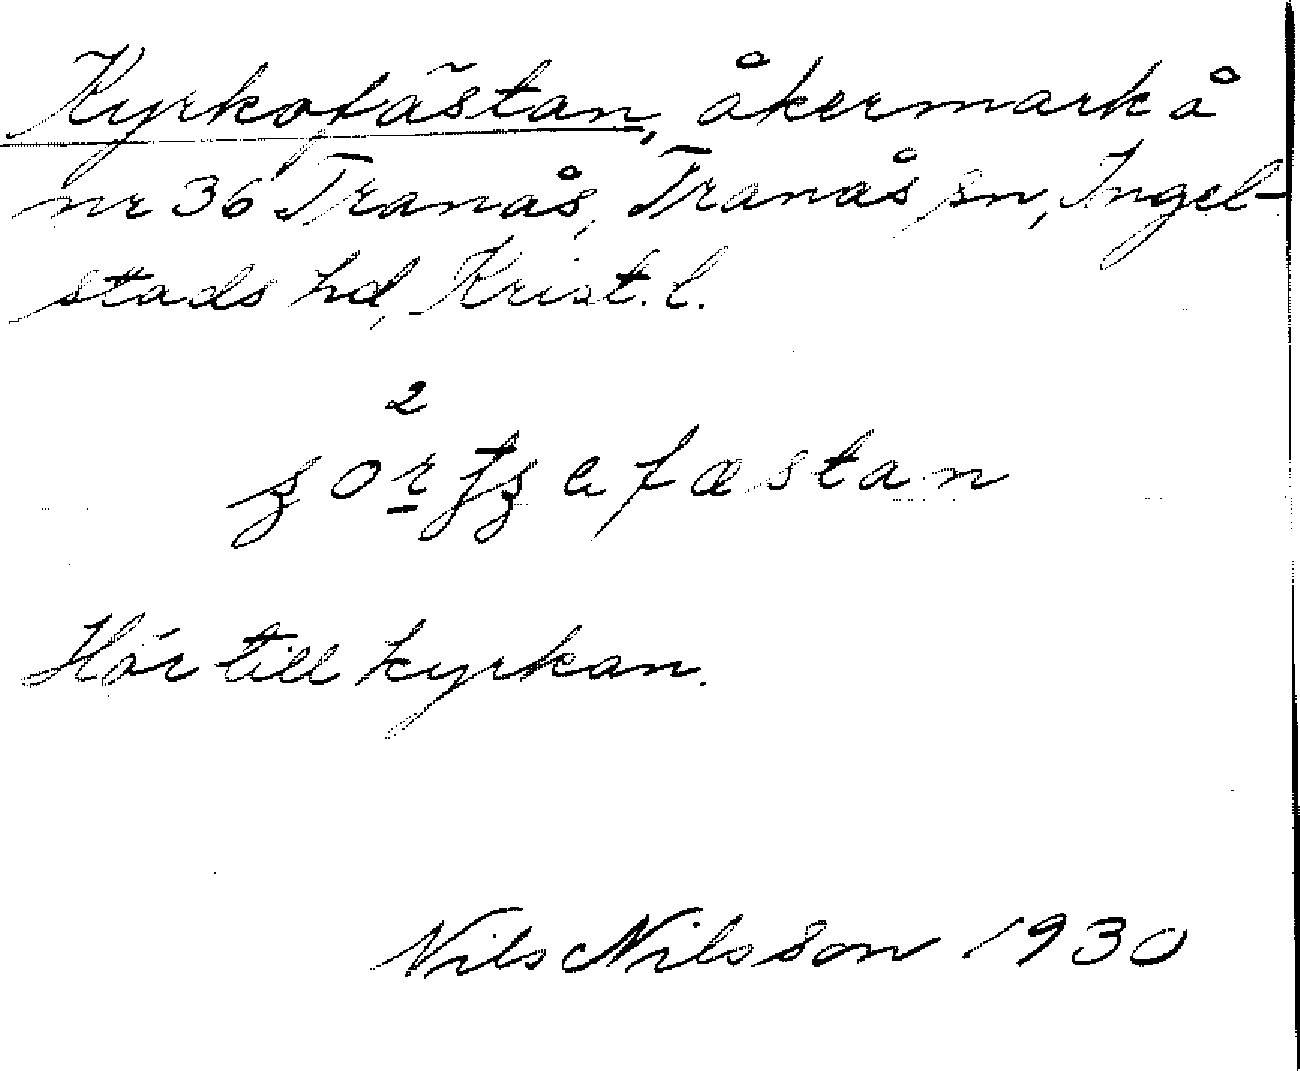 Kyrkofästan, åkermark å
nr 36 Tranås, Tranås sn, Ingel-
stads hd, Krist. l.
2
Hör till kyrkan.
Nils Nilsson 1930